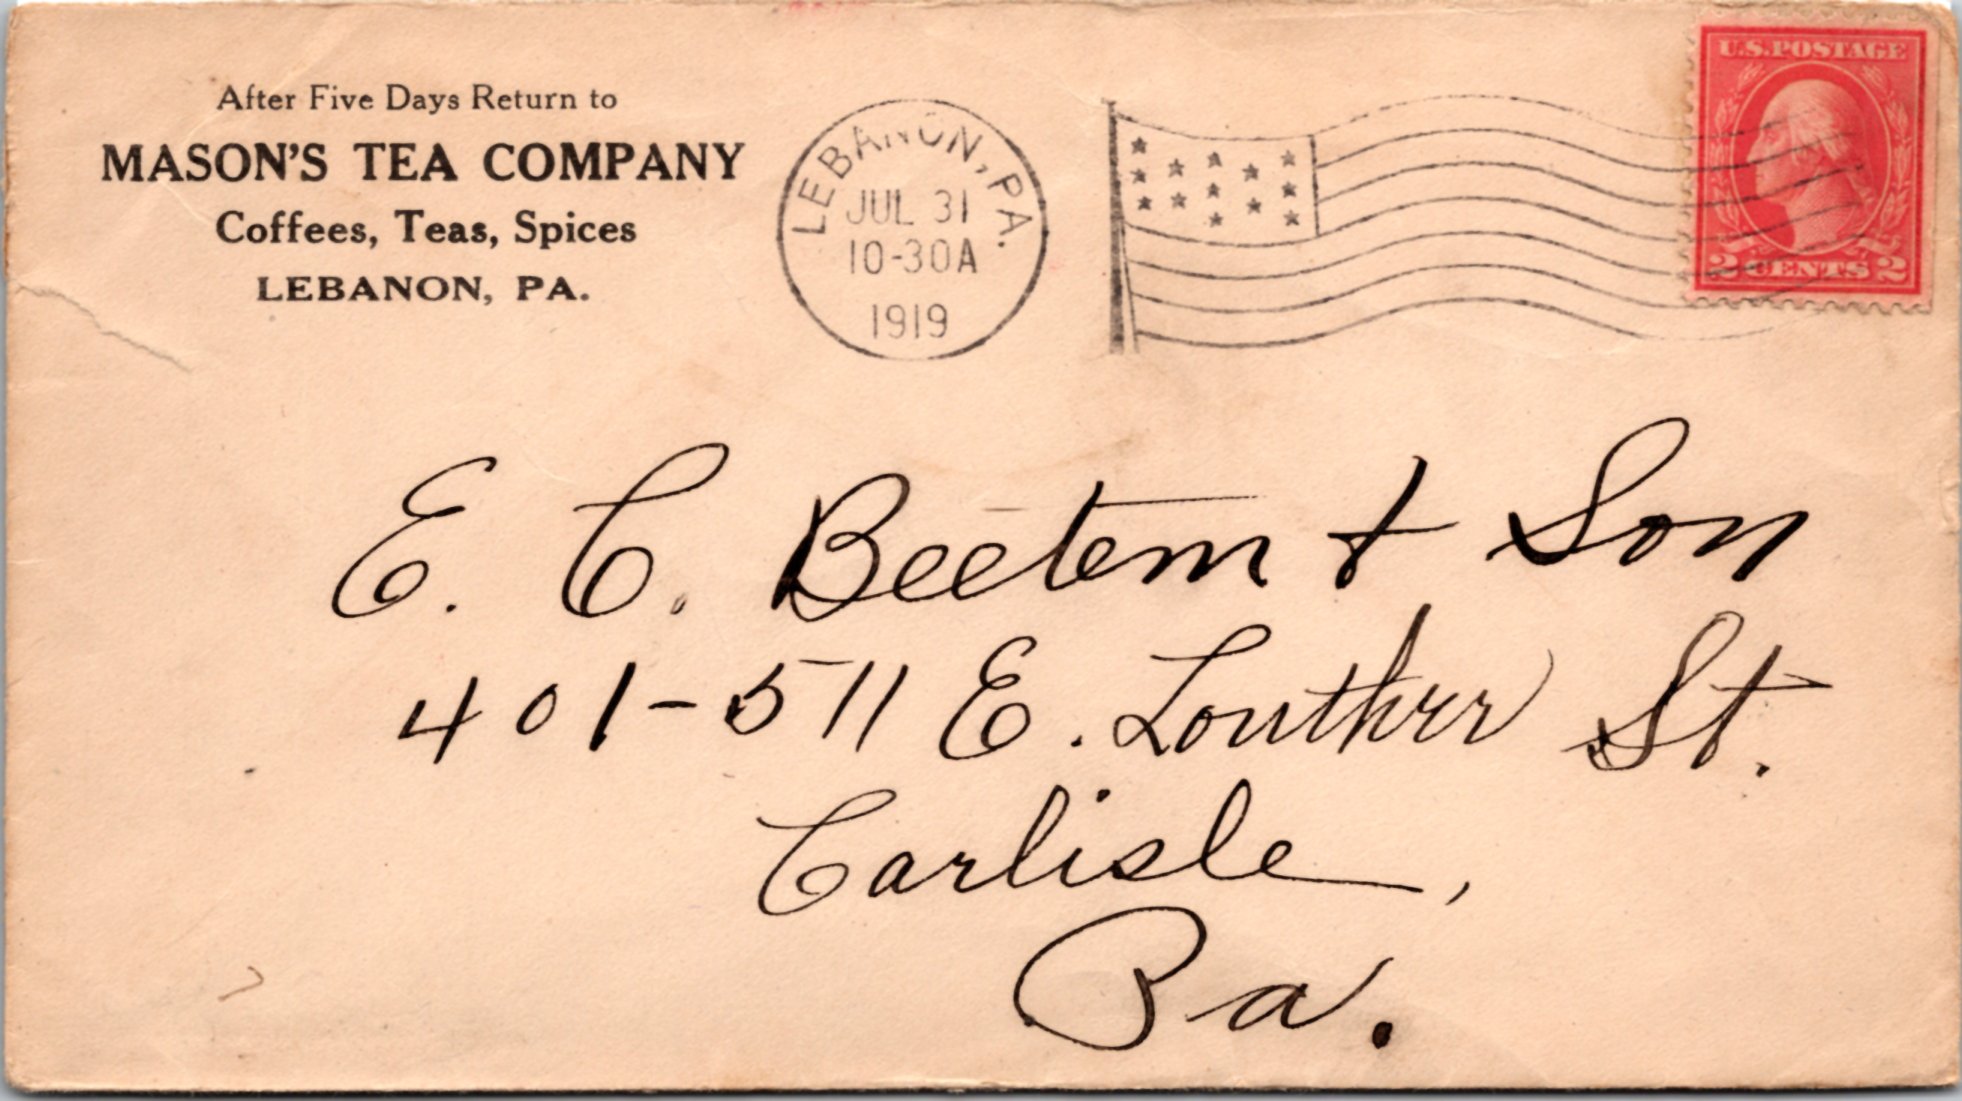 After Five Days Return to
MASON'S TEA COMPANY
Coffees, Teas, Spices
LEBANON, PA.
LEBANON, PA.
JUL 31
10-30A
1919
U.S. POSTAGE
2 CENTS 2
E. C. Beetem & Son
401-511 E. Louther St.
Carlisle,
Pa.